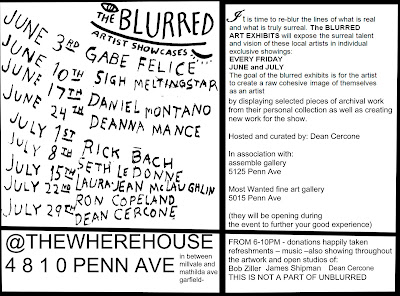 THE BLURRED
ARTIST SHOWCASES
JUNE 3RD GABE FELICE
JUNE 10TH SIGH MELTINGSTAR
JUNE 17TH DANIEL MONTANO
JUNE 24TH DEANNA MANCE
JULY 1ST RICK BACH
JULY 8TH SETH LE DONNE
JULY 15TH LAURA JEAN MCLAUGHLIN
JULY 22ND RON COPELAND
JULY 29TH DEAN CERCONE
@THEWHEREHOUSE
4 8 1 0 PENN AVE
in between
millvale and
mathilda ave
garfield-
It is time to re-blur the lines of what is real
and what is truly surreal. The BLURRED
ART EXHIBITS will expose the surreal talent
and vision of these local artists in individual
exclusive showings:
EVERY FRIDAY
JUNE and JULY
The goal of the blurred exhibits is for the artist
to create a raw cohesive image of themselves
as an artist
by displaying selected pieces of archival work
from their personal collection as well as creating
new work for the show.
Hosted and curated by: Dean Cercone
In association with:
assemble gallery
5125 Penn Ave
Most Wanted fine art gallery
5015 Penn Ave
(they will be opening during
the event to further your good experience)
FROM 6-10PM - donations happily taken
refreshments – music –also showing throughout
the artwork and open studios of:
Bob Ziller James Shipman Dean Cercone
THIS IS NOT A PART OF UNBLURRED